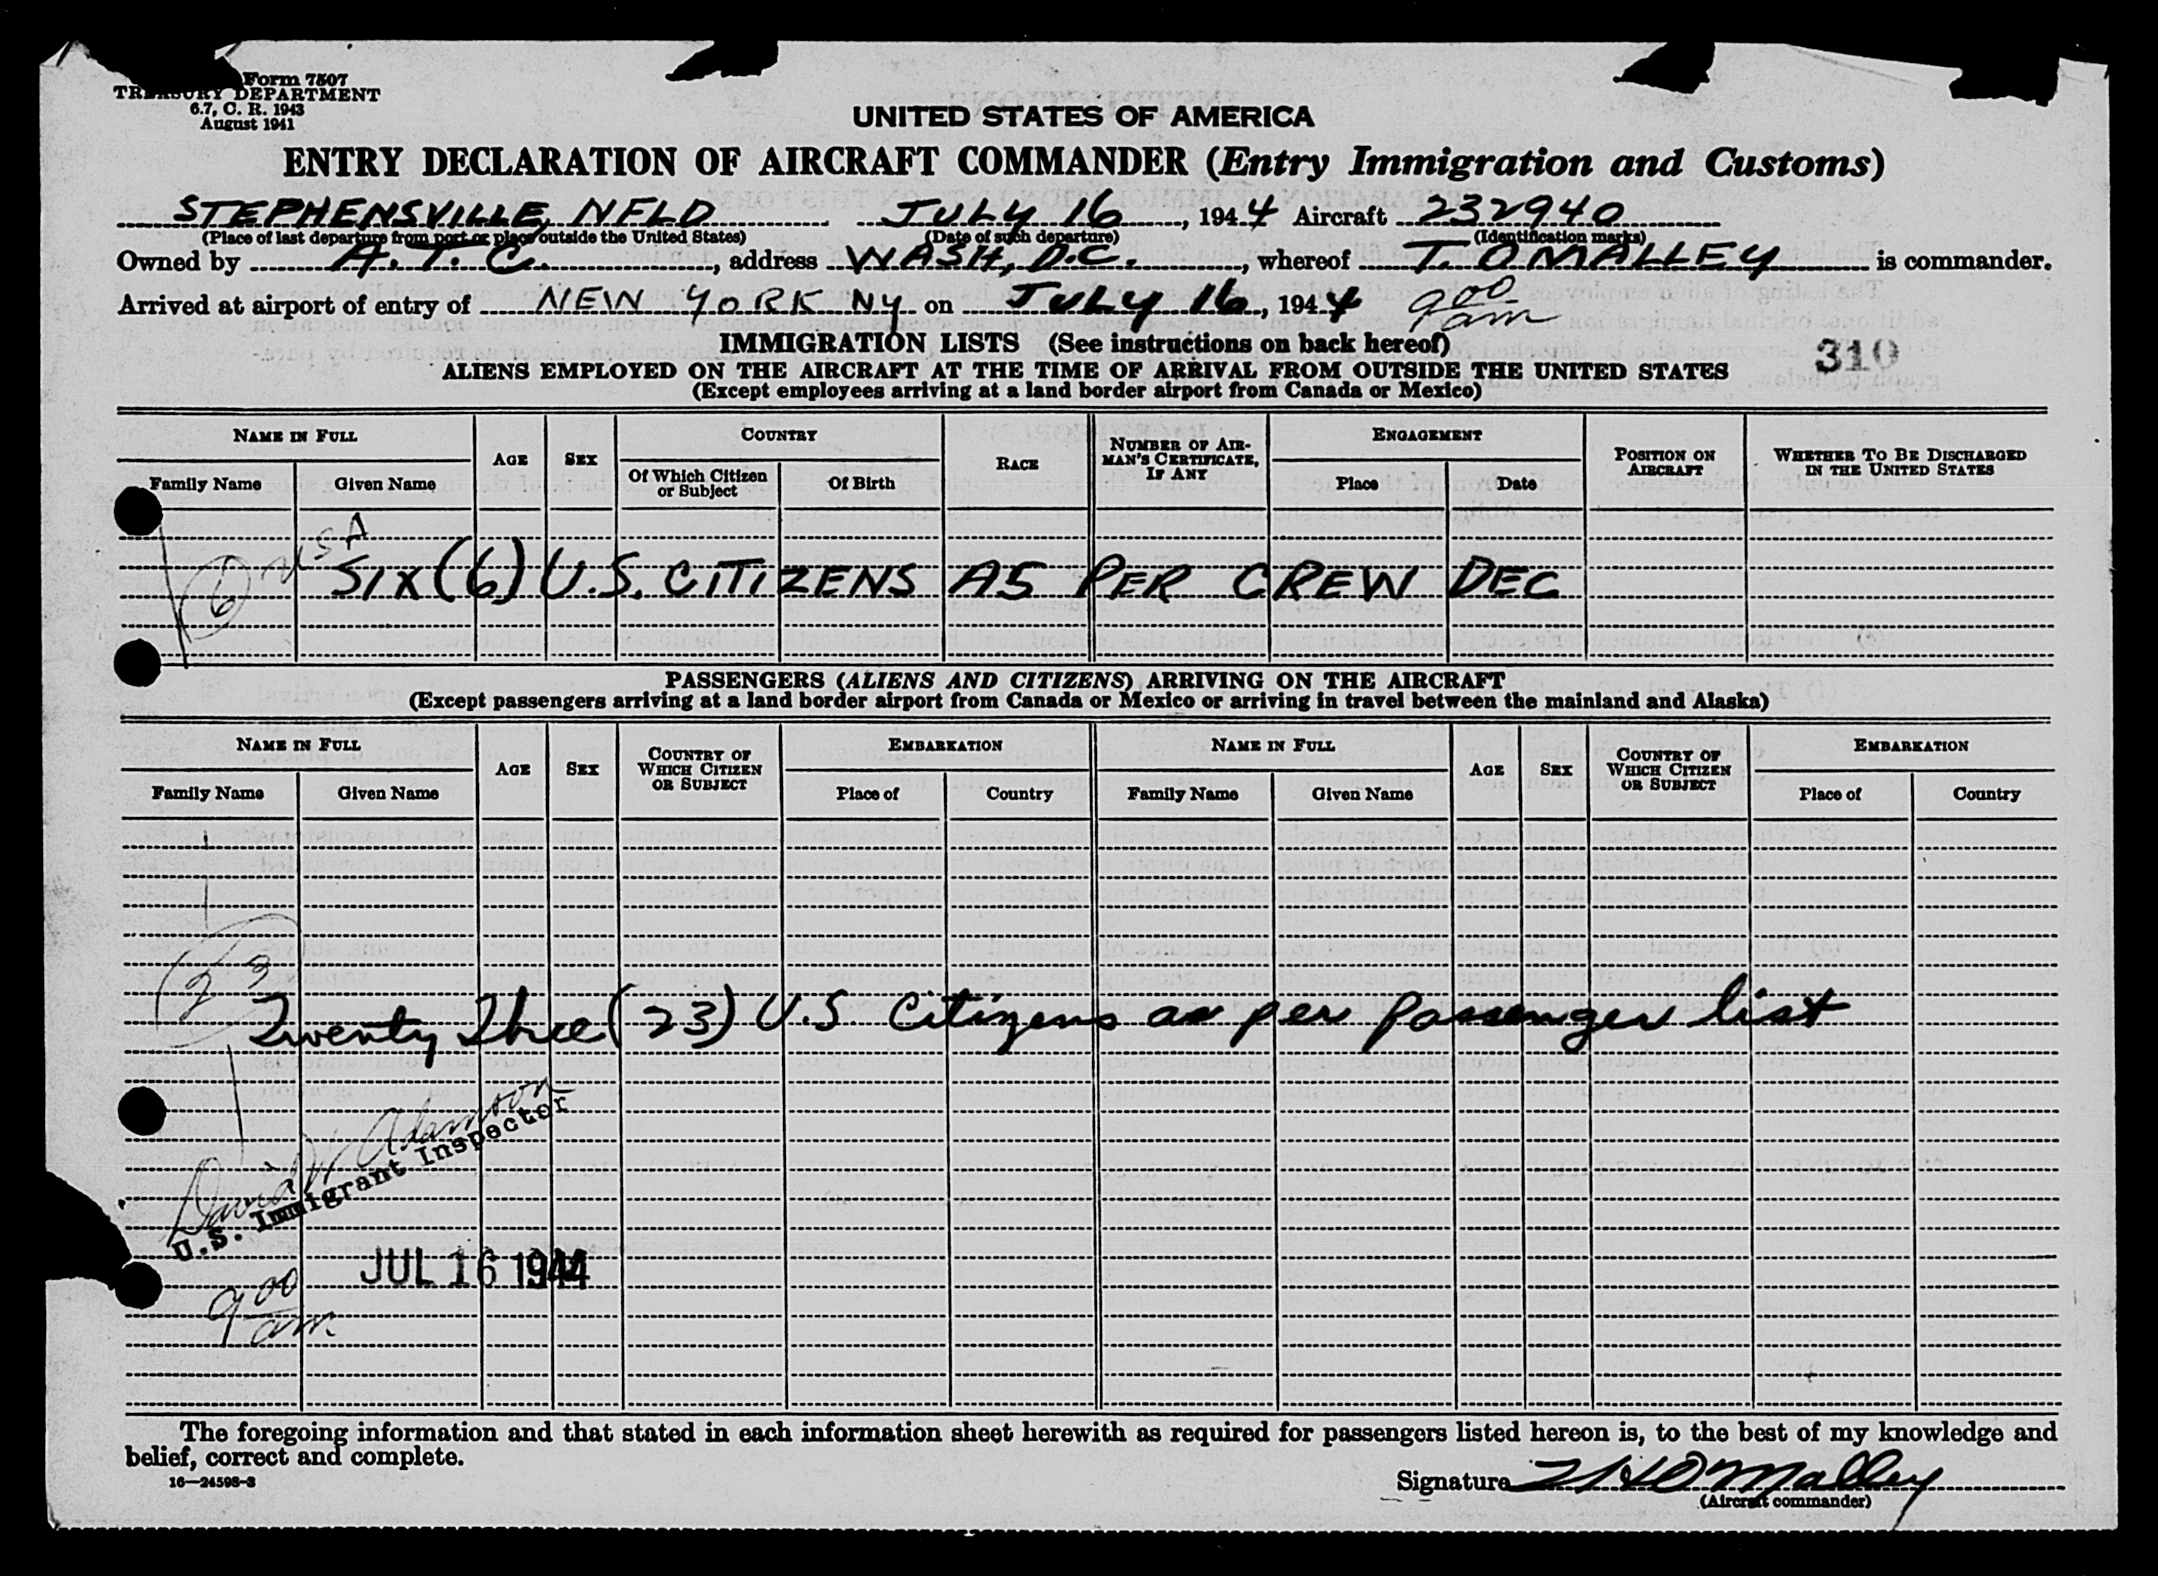 Form 7507
TREASURY DEPARTMENT
6.7, C. R. 1943
August 1941
UNITED STATES OF AMERICA
ENTRY DECLARATION OF AIRCRAFT COMMANDER (Entry Immigration and Customs)
STEPHENSVILLE, NFLD JULY 16, 1944 Aircraft 232940
(Place of last departure from port or place outside the United States) (Date of such departure) (Identification marks)
Owned by A.T.C., address WASH, D.C., whereof T. O MALLEY is commander.
Arrived at airport of entry of NEW YORK NY on JULY 16, 1944 9 00 am
IMMIGRATION LISTS (See instructions on back hereof)
310
ALIENS EMPLOYED ON THE AIRCRAFT AT THE TIME OF ARRIVAL FROM OUTSIDE THE UNITED STATES
(Except employees arriving at a land border airport from Canada or Mexico)
NAME IN FULL AGE SEX COUNTRY RACE NUMBER OF AIRMAN'S CERTIFICATE, IF ANY ENGAGEMENT POSITION ON AIRCRAFT WHETHER TO BE DISCHARGED IN THE UNITED STATES
Family Name Given Name Of Which Citizen or Subject Of Birth Place Date
6 USA
SIX (6) U.S. CITIZENS AS PER CREW DEC
PASSENGERS (ALIENS AND CITIZENS) ARRIVING ON THE AIRCRAFT
(Except passengers arriving at a land border airport from Canada or Mexico or arriving in travel between the mainland and Alaska)
NAME IN FULL AGE SEX COUNTRY OF WHICH CITIZEN OR SUBJECT EMBARKATION NAME IN FULL AGE SEX COUNTRY OF WHICH CITIZEN OR SUBJECT EMBARKATION
Family Name Given Name Place of Country Family Name Given Name Place of Country
23
Twenty Three (23) U.S. Citizens as per Passenger list
David Adamson
U.S. Immigrant Inspector
JUL 16 1944
9 00 am
The foregoing information and that stated in each information sheet herewith as required for passengers listed hereon is, to the best of my knowledge and
belief, correct and complete.
16—24598-3
Signature O'Malley
(Aircraft commander)